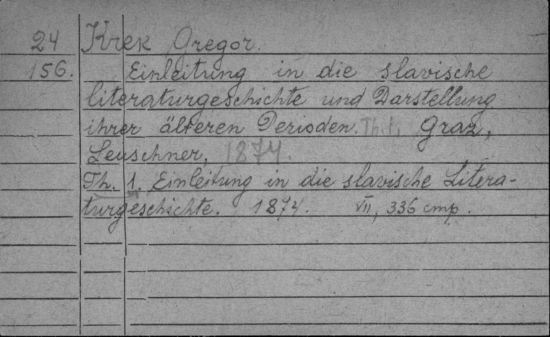 24 Krek Gregor.
156. Einleitung in die slavische
literaturgeschichte und Darstellung
ihrer älteren Perioden. Th. 1, Graz,
Leuschner, 1874.
Th. 1. Einleitung in die slavische Litera-
turgeschichte. 1874. VII, 336 стр.